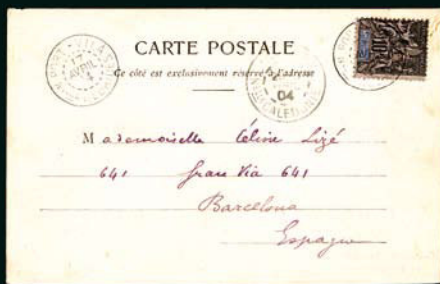 CARTE POSTALE
Ce côté est exclusivement réservé à l'adresse
PORT-VILA
17
AVRIL
04
CALEDONIE
10
Mademoiselle Céline Lizé
641 Gran Via 641
Barcelona
Espagne